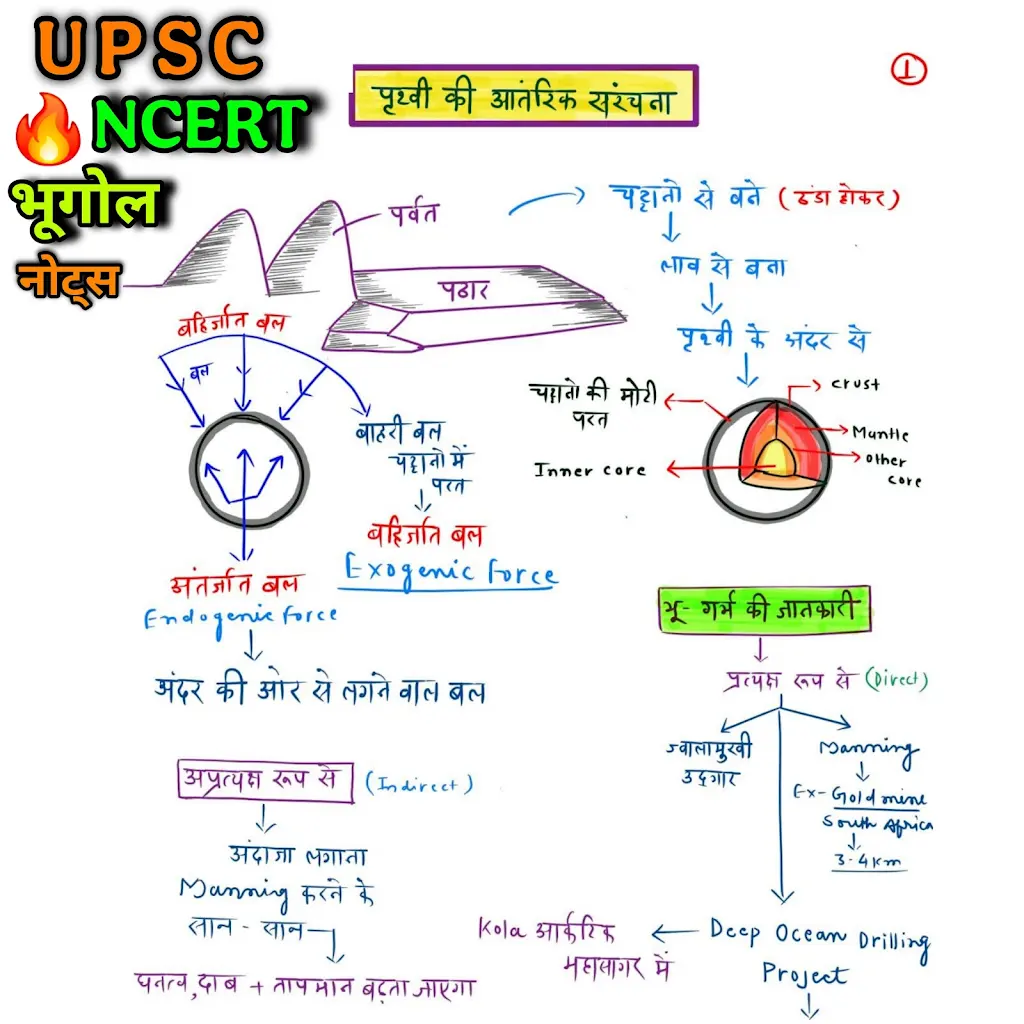 UPSC
NCERT
भूगोल
नोट्स
1
पृथ्वी की आंतरिक संरचना
पर्वत
पठार
चट्टानो से बने (ठंडा होकर)
लाव से बना
पृथ्वी के अंदर से
बहिर्जात बल
बल
बाहरी बल
चट्टानो में
परत
बहिर्जात बल
Exogenic Force
चट्टानो की मोटी
परत
Inner core
crust
Mantle
other
core
अंतर्जात बल
Endogenic Force
अंदर की ओर से लगने वाल बल
भू- गर्भ की जानकारी
प्रत्यक्ष रूप से (Direct)
ज्वालामुखी
उदगार
Manning
Ex- Gold mine
South Africa
3-4 km
Deep Ocean Drilling
Project
Kola आर्कटिक
महासागर में
अप्रत्यक्ष रूप से (Indirect)
अंदाजा लगाना
Manning करने के
सान - सान
घनत्व, दाब + तापमान बढ़ता जाएगा